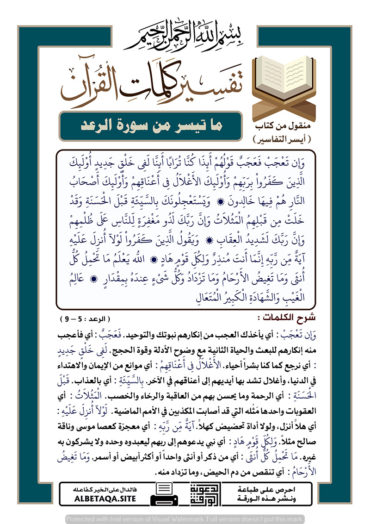 بسم الله الرحمن الرحيم
تفسير كلمات القرآن
منقول من كتاب
( أيسر التفاسير )
ما تيسر من سورة الرعد
وَإِن تَعْجَبْ فَعَجَبٌ قَوْلُهُمْ أَئِذَا كُنَّا تُرَابًا أَئِنَّا لَفِى خَلْقٍ جَدِيدٍ أُوْلَٰٓئِكَ
الَّذِينَ كَفَرُواْ بِرَبِّهِمْ وَأُوْلَٰٓئِكَ الأَغْلاَلُ فِى أَعْنَاقِهِمْ وَأُوْلَٰٓئِكَ أَصْحَابُ
النَّارِ هُمْ فِيهَا خَالِدونَ ۞ وَيَسْتَعْجِلُونَكَ بِالسَّيِّئَةِ قَبْلَ الْحَسَنَةِ وَقَدْ
خَلَتْ مِن قَبْلِهِمُ الْمَثُلاَتُ وَإِنَّ رَبَّكَ لَذُو مَغْفِرَةٍ لِّلنَّاسِ عَلَى ظُلْمِهِمْ
وَإِنَّ رَبَّكَ لَشَدِيدُ الْعِقَابِ ۞ وَيَقُولُ الَّذِينَ كَفَرُواْ لَوْلآ أُنزِلَ عَلَيْهِ
آيَةٌ مِّن رَّبِّهِ إِنَّمَا أَنتَ مُنذِرٌ وَلِكُلِّ قَوْمٍ هَادٍ ۞ اللّهُ يَعْلَمُ مَا تَحْمِلُ كُلُّ
أُنثَى وَمَا تَغِيضُ الأَرْحَامُ وَمَا تَزْدَادُ وَكُلُّ شَىْءٍ عِندَهُ بِمِقْدَارٍ ۞ عَالِمُ
الْغَيْبِ وَالشَّهَادَةِ الْكَبِيرُ الْمُتَعَالِ
شرح الكلمات :
( الرعد : 5 – 9 )
وَإِن تَعْجَبْ : أي يأخذك العجب من إنكارهم نبوتك والتوحيد. فَعَجَبٌ : أي فأعجب
منه إنكارهم للبعث والحياة الثانية مع وضوح الأدلة وقوة الحجج. لَفِى خَلْقٍ جَدِيدٍ
: أي نرجع كما كنا بشراً أحياء. الأَغْلاَلُ فِى أَعْنَاقِهِمْ : أي موانع من الإيمان والاهتداء
في الدنيا، وأغلال تشد بها أيديهم إلى أعناقهم في الآخر. بِالسَّيِّئَةِ : أي بالعذاب. قَبْلَ
الْحَسَنَةِ : أي الرحمة وما يحسن بهم من العاقبة والرخاء والخصب. الْمَثُلاَتُ : أي
العقوبات واحدها مثُله التي قد أصابت المكذبين في الأمم الماضية. لَوْلآ أُنزِلَ عَلَيْهِ :
أي هلاَّ أنزل، ولولا أداة تحضيض كهلاً. آيَةٌ مِّن رَّبِّهِ : أي معجزة كعصا موسى وناقة
صالح مثلاً. وَلِكُلِّ قَوْمٍ هَادٍ : أي نبي يدعوهم إلى ربهم ليعبدوه وحده ولا يشركون به
غيره. مَا تَحْمِلُ كُلُّ أُنثَى : أي من ذكر أو أنثى واحداً أو أكثر أبيض أو أسمر. وَمَا تَغِيضُ
الأَرْحَامُ : أي تنقص من دم الحيض، وما تزداد منه.
احرص على طباعة
ونشر هذه الورقة
الدعوية
الورقة
فالدال على الخير كفاعله
ALBETAQA.SITE